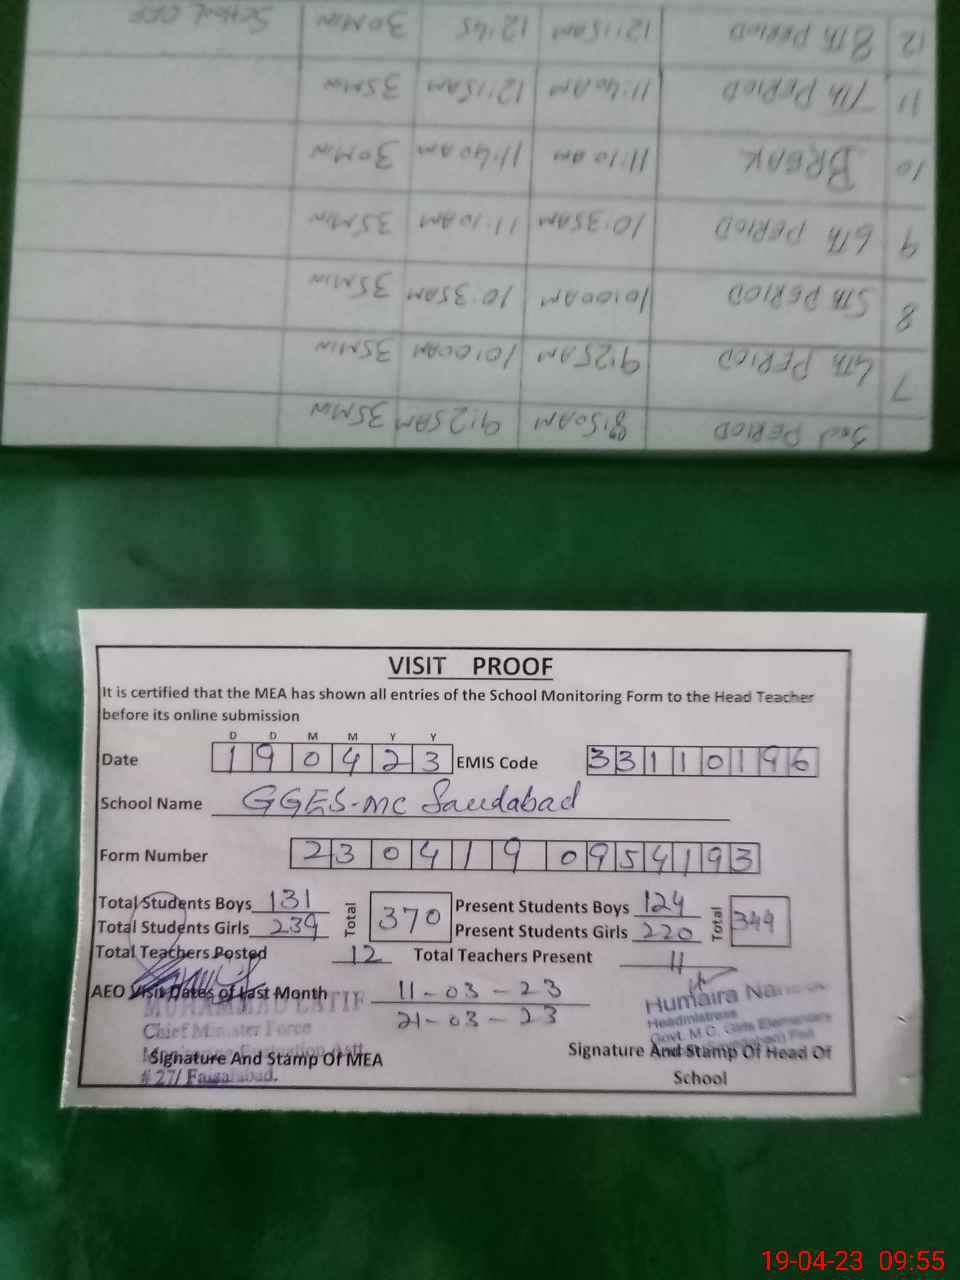 3rd PERIOD 8:50AM 9:25AM 35MIN
7 4th PERIOD 9:25AM 10:00AM 35MIN
8 5th PERIOD 10:00AM 10:35AM 35MIN
9 6th PERIOD 10:35AM 11:10AM 35MIN
10 BREAK 11:10AM 11:40AM 30MIN
11 7th PERIOD 11:40AM 12:15AM 35MIN
12 8th PERIOD 12:15AM 12:45 30MIN SCHOOL OFF
VISIT PROOF
It is certified that the MEA has shown all entries of the School Monitoring Form to the Head Teacher
before its online submission
D D M M Y Y
Date 190423 EMIS Code 33110196
School Name GGES-MC Saudabad
Form Number 2304190954193
Total Students Boys 131 Total 370 Present Students Boys 124 Total 344
Total Students Girls 239 Present Students Girls 220
Total Teachers Posted 12 Total Teachers Present 11
AEO Visit Dates of Last Month 11-03-23
21-03-23
MUHAMMAD LATIF
Chief Minister Force
# 27/ Faisalabad.
Humaira
Headmistress
Govt. M.C. Girls Elementary
Signature And Stamp Of MEA
Signature And Stamp Of Head Of
School
19-04-23 09:55